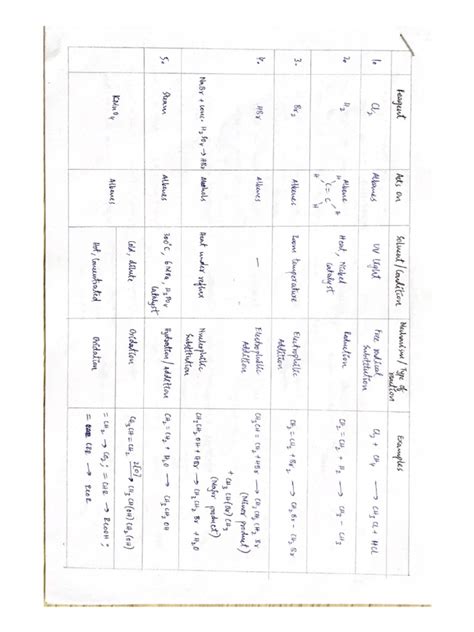 Reagent
Acts on
Solvent/Condition
Mechanism/Type of
reaction
Examples
1.
Cl₂
Alkanes
UV light
Free radical
Substitution
Cl₂ + CH₄ → CH₃Cl + HCl
2.
H₂
Alkene
H H
C = C
H H
Heat, Nickel
Catalyst
Reduction
CH₂ = CH₂ + H₂ → CH₃ - CH₃
3.
Br₂
Alkenes
Room temperature
Electrophilic
Addition
CH₂ = CH₂ + Br₂ → CH₂Br - CH₂Br
4.
HBr
Alkenes
—
Electrophilic
Addition
CH₃CH = CH₂ + HBr → CH₃CH₂CH₂Br
(Minor product)
+ CH₃CH(Br)CH₃
(Major product)
NaBr + conc. H₂SO₄ → HBr
Alcohols
Heat under reflux
Nucleophilic
Substitution
CH₃CH₂OH + HBr → CH₃CH₂Br + H₂O
5.
Steam
Alkenes
300°C, 6 MPa, H₃PO₄
Catalyst
Hydration/addition
CH₂ = CH₂ + H₂O → CH₃CH₂OH
KMnO₄
Alkenes
Cold, dilute
Oxidation
CH₃CH = CH₂ [O] → CH₃CH(OH)CH₂(OH)
Hot, Concentrated
Oxidation
= CH₂ → CO₂ ; = CHR → RCOOH ;